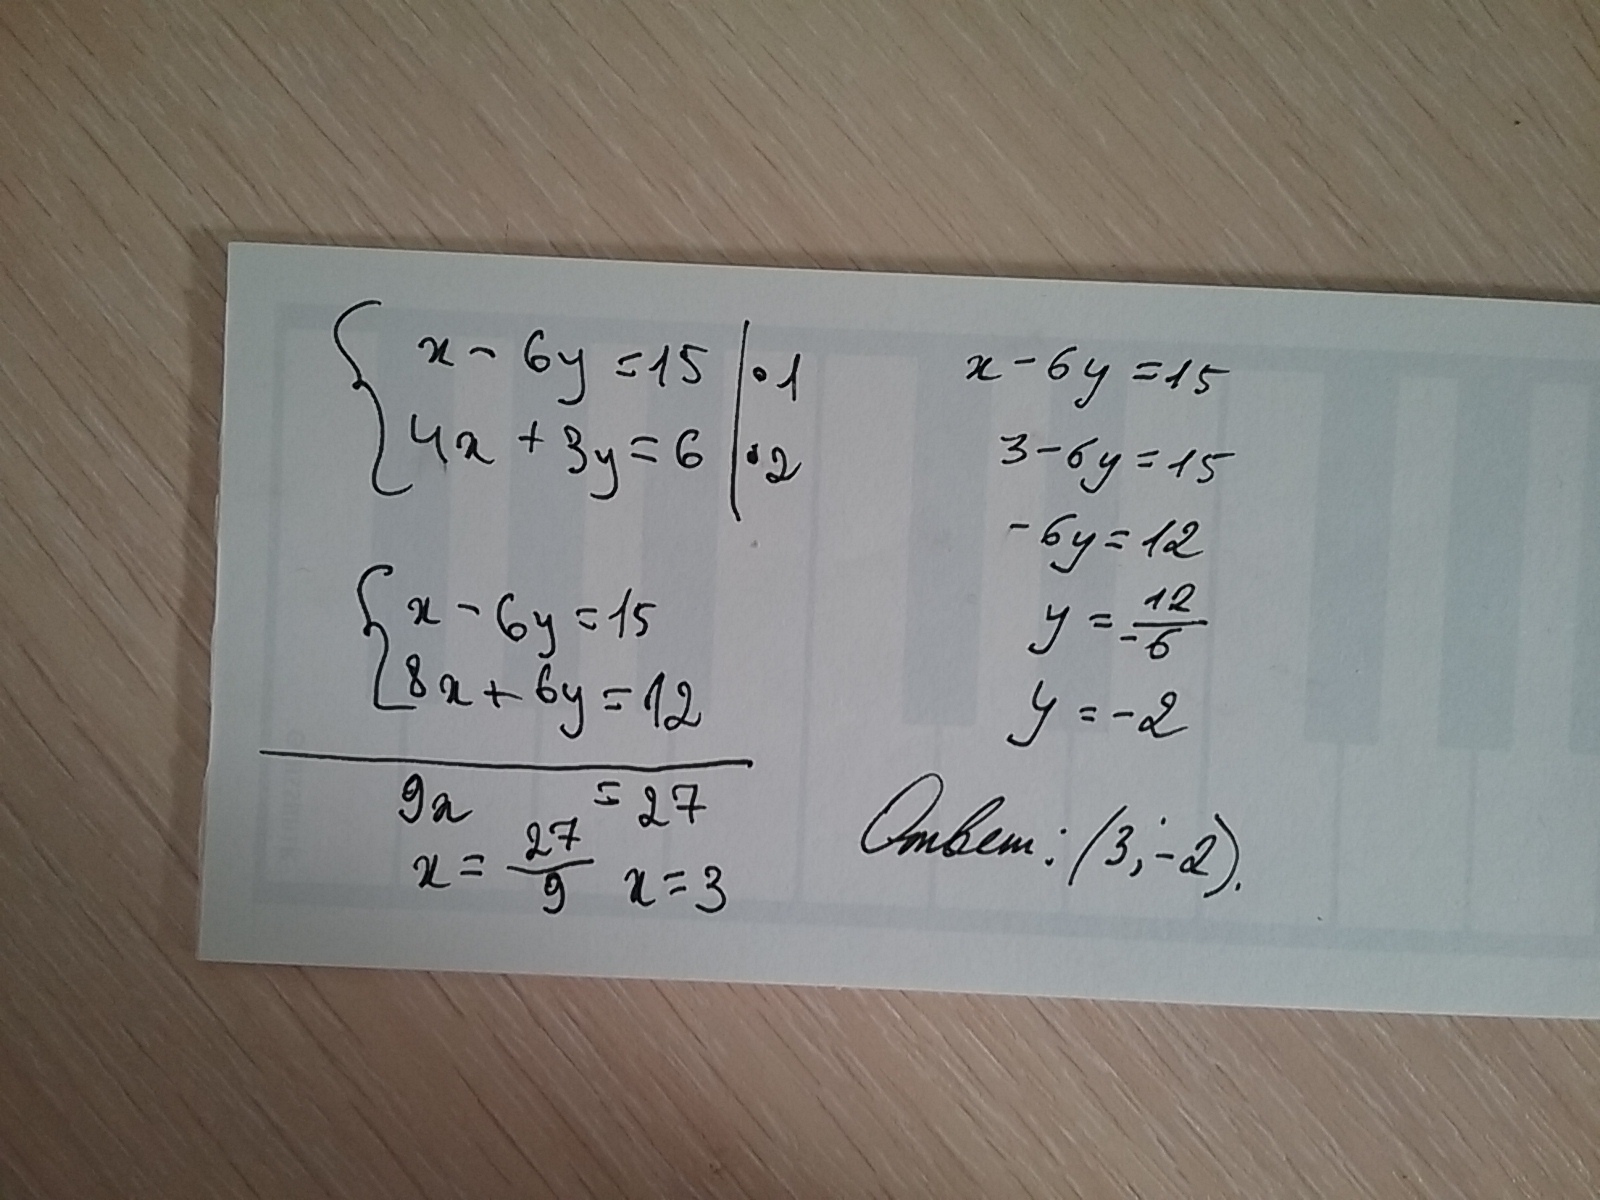 x - 6y = 15 | · 1
4x + 3y = 6 | · 2
x - 6y = 15
8x + 6y = 12
9x = 27
x = 27/9 x = 3
x - 6y = 15
3 - 6y = 15
- 6y = 12
y = 12/-6
y = -2
Ответ: (3; -2).